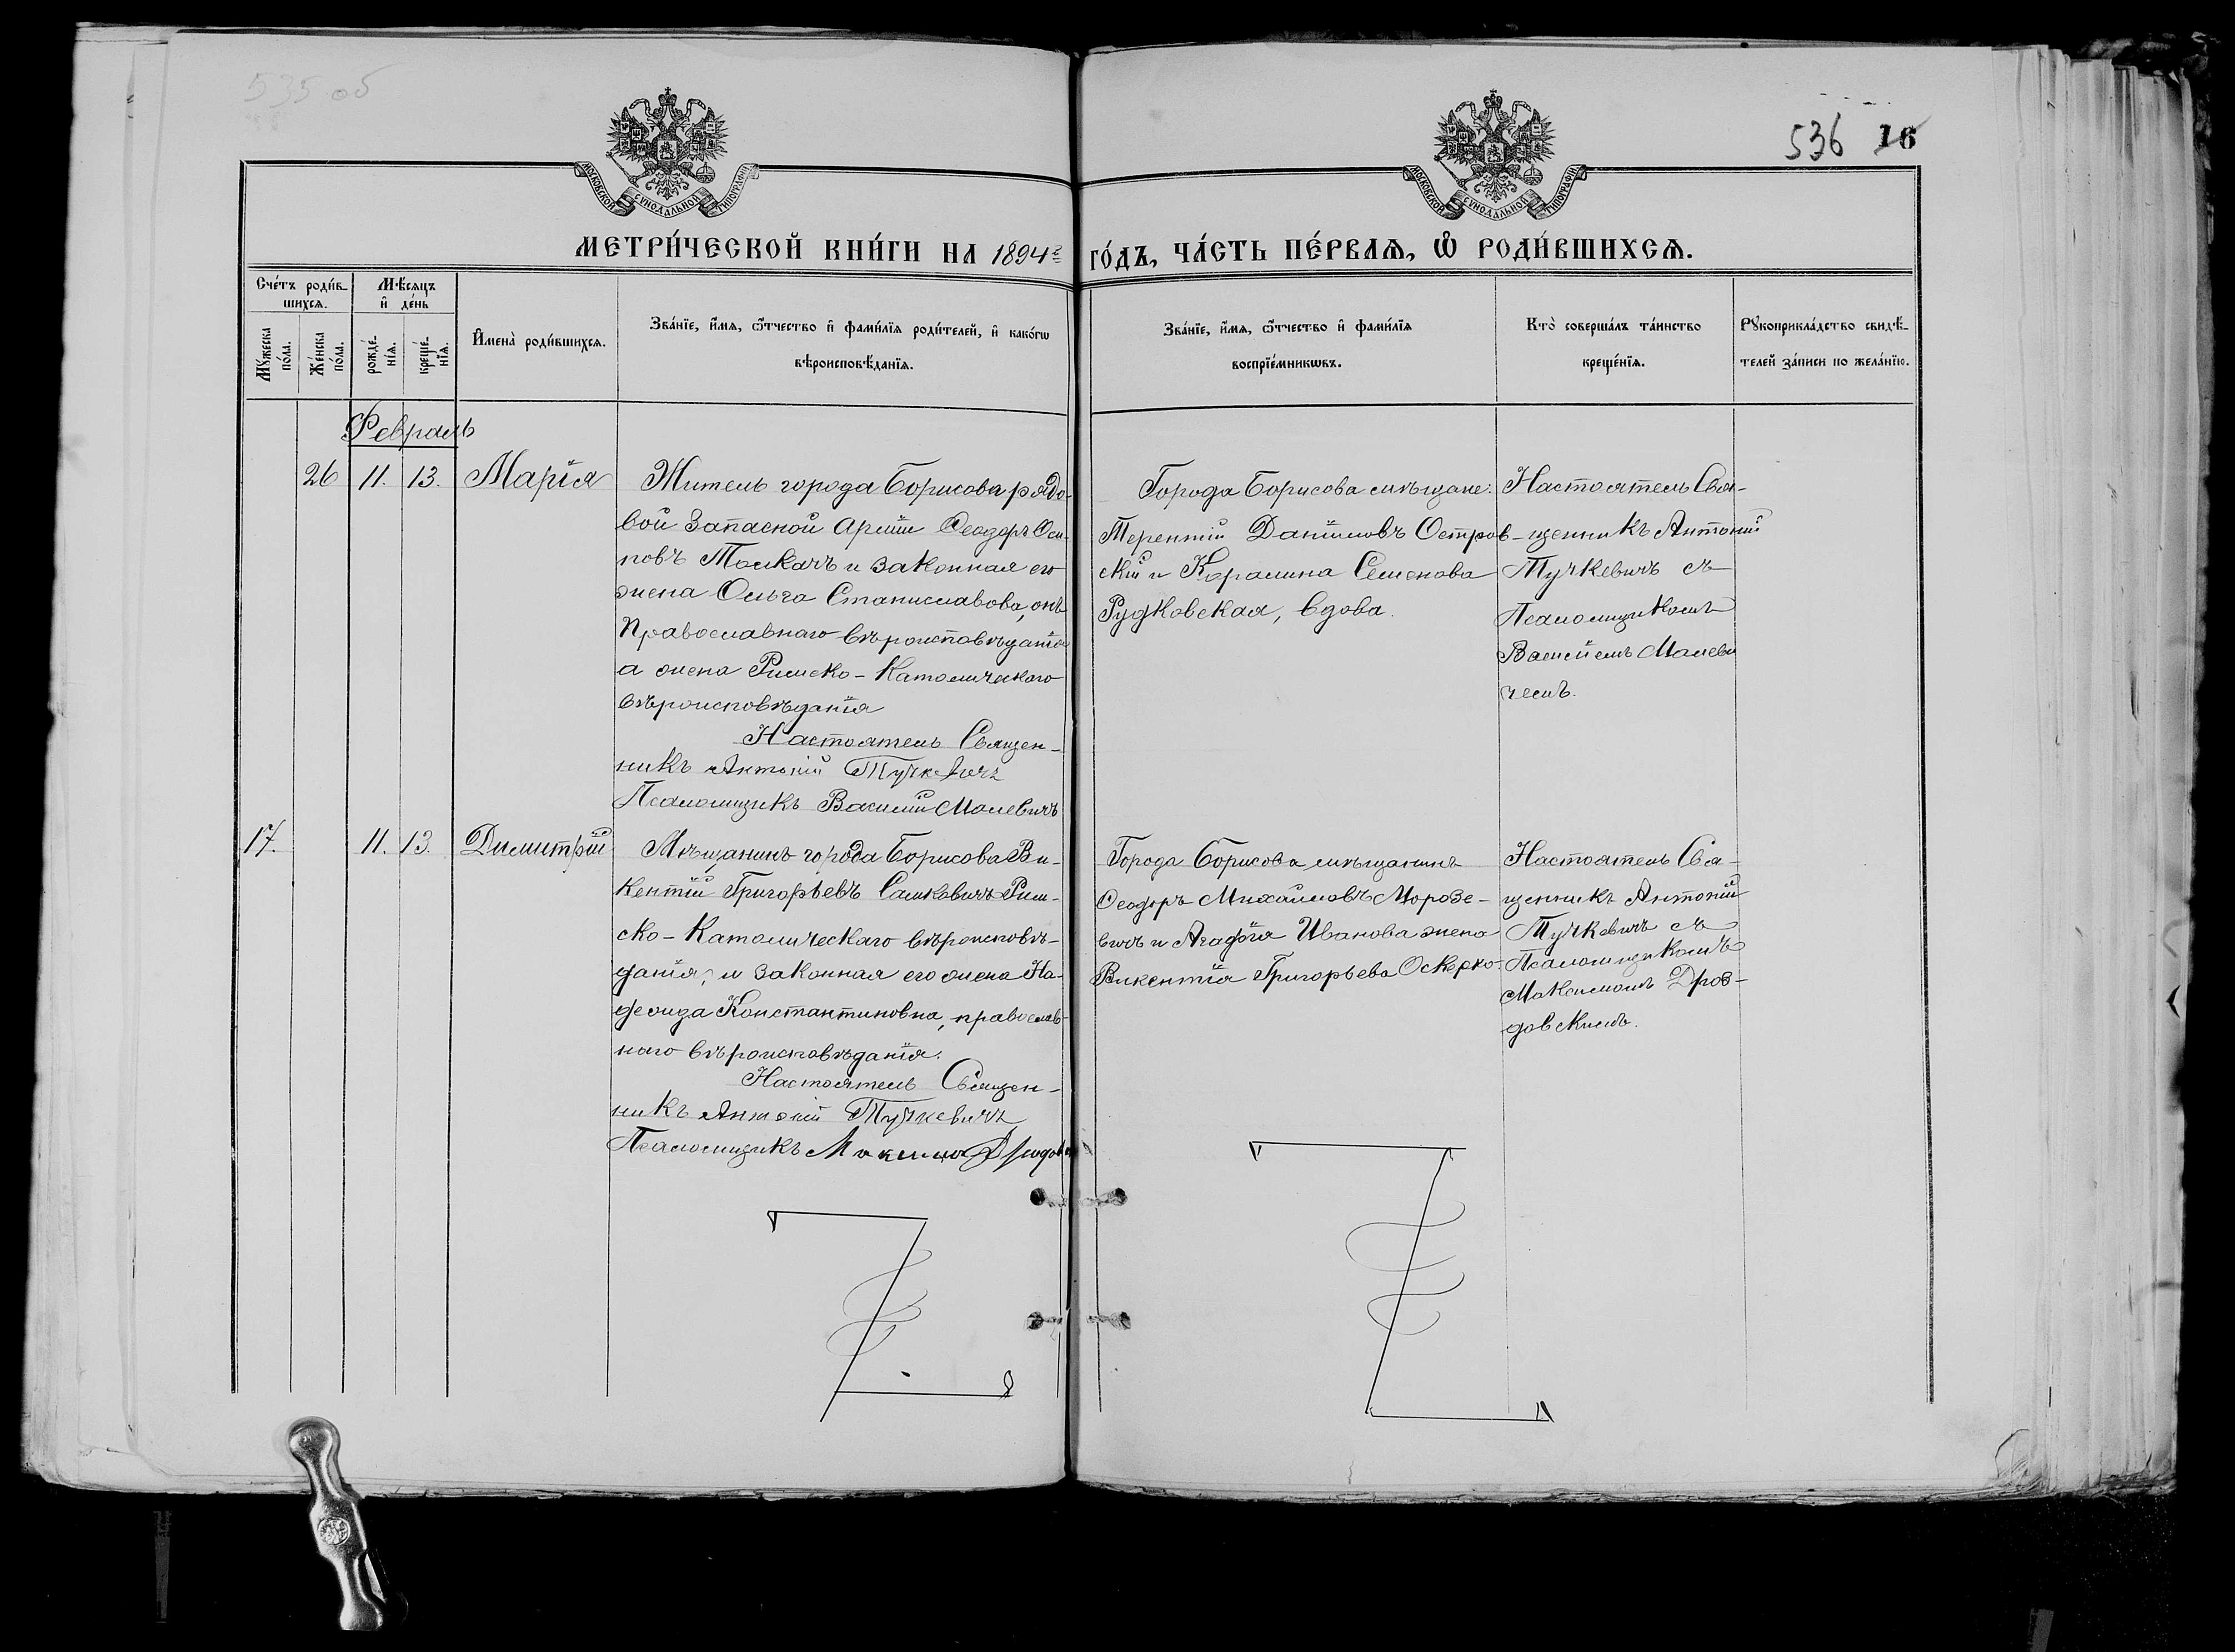 535 об
536 16
МОСКОВСКОЙ СѴНОДАЛЬНОЙ ТИПОГРАФІИ
МОСКОВСКОЙ СѴНОДАЛЬНОЙ ТИПОГРАФІИ
МЕТРИ́ЧЕСКОЙ КНИ́ГИ НА 1894 г. ГО́ДЪ, ЧА́СТЬ ПЕ́РВАѦ, Ѡ҆ РОДИ́ВШИХСѦ.
Сче́тъ роди́в-
шихсѧ.
Мꙋ́жеска
по́ла.
Же́нска
по́ла.
Мѣ́сѧцъ
и҆ де́нь
рожде́-
нїѧ.
креще́-
нїѧ.
И҆мена̀ роди́вшихсѧ.
Зва́нїе, и҆́мѧ, ѻ҆́тчество и҆ фами́лїѧ роди́телей, и҆ како́гѡ
вѣроисповѣ́данїѧ.
Зва́нїе, и҆́мѧ, ѻ҆́тчество и҆ фами́лїѧ
воспрїе́мникѡвъ.
Кто̀ соверша́лъ та́инство
креще́нїѧ.
Рꙋкоприкла́дство свидѣ́-
телей за́писи по жела́нїю.
Февраль
26 11. 13. Марія
Житель города Борисова рядо-
вой Запасной Арміи Ѳеодоръ Оси-
повъ Толкачъ и законная его
жена Ольга Станиславова, онъ
Православнаго вѣроисповѣданія
а жена Римско-Католическаго
вѣроисповѣданія
Настоятель Священ-
никъ Антоній Тучкевичъ
Псаломщикъ Василій Малевичъ
Города Борисова мѣщане:
Терентій Даніиловъ Остров-
скій и Каролина Семенова
Рудковская, вдова.
Настоятель Свя-
щенникъ Антоній
Тучкевичъ съ
Псаломщикомъ
Василіемъ Малеви
чемъ.
17. 11. 13. Димитрій
Мѣщанинъ города Борисова Ви-
кентій Григорьевъ Сашковичъ Рим-
ско-Католическаго вѣроисповѣ-
данія, и законная его жена На-
дежда Константиновна, православ-
наго вѣроисповѣданія.
Настоятель Священ-
никъ Антоній Тучкевичъ
Псаломщикъ Максимъ
Города Борисова мѣщанинъ
Ѳеодоръ Михайловъ Морозе-
вичъ и Агафія Иванова жена
Викентія Григорьева Оскерко.
Настоятель Свя-
щенникъ Антоній
Тучкевичъ съ
Псаломщикомъ
Максимомъ Дроз-
довскимъ.